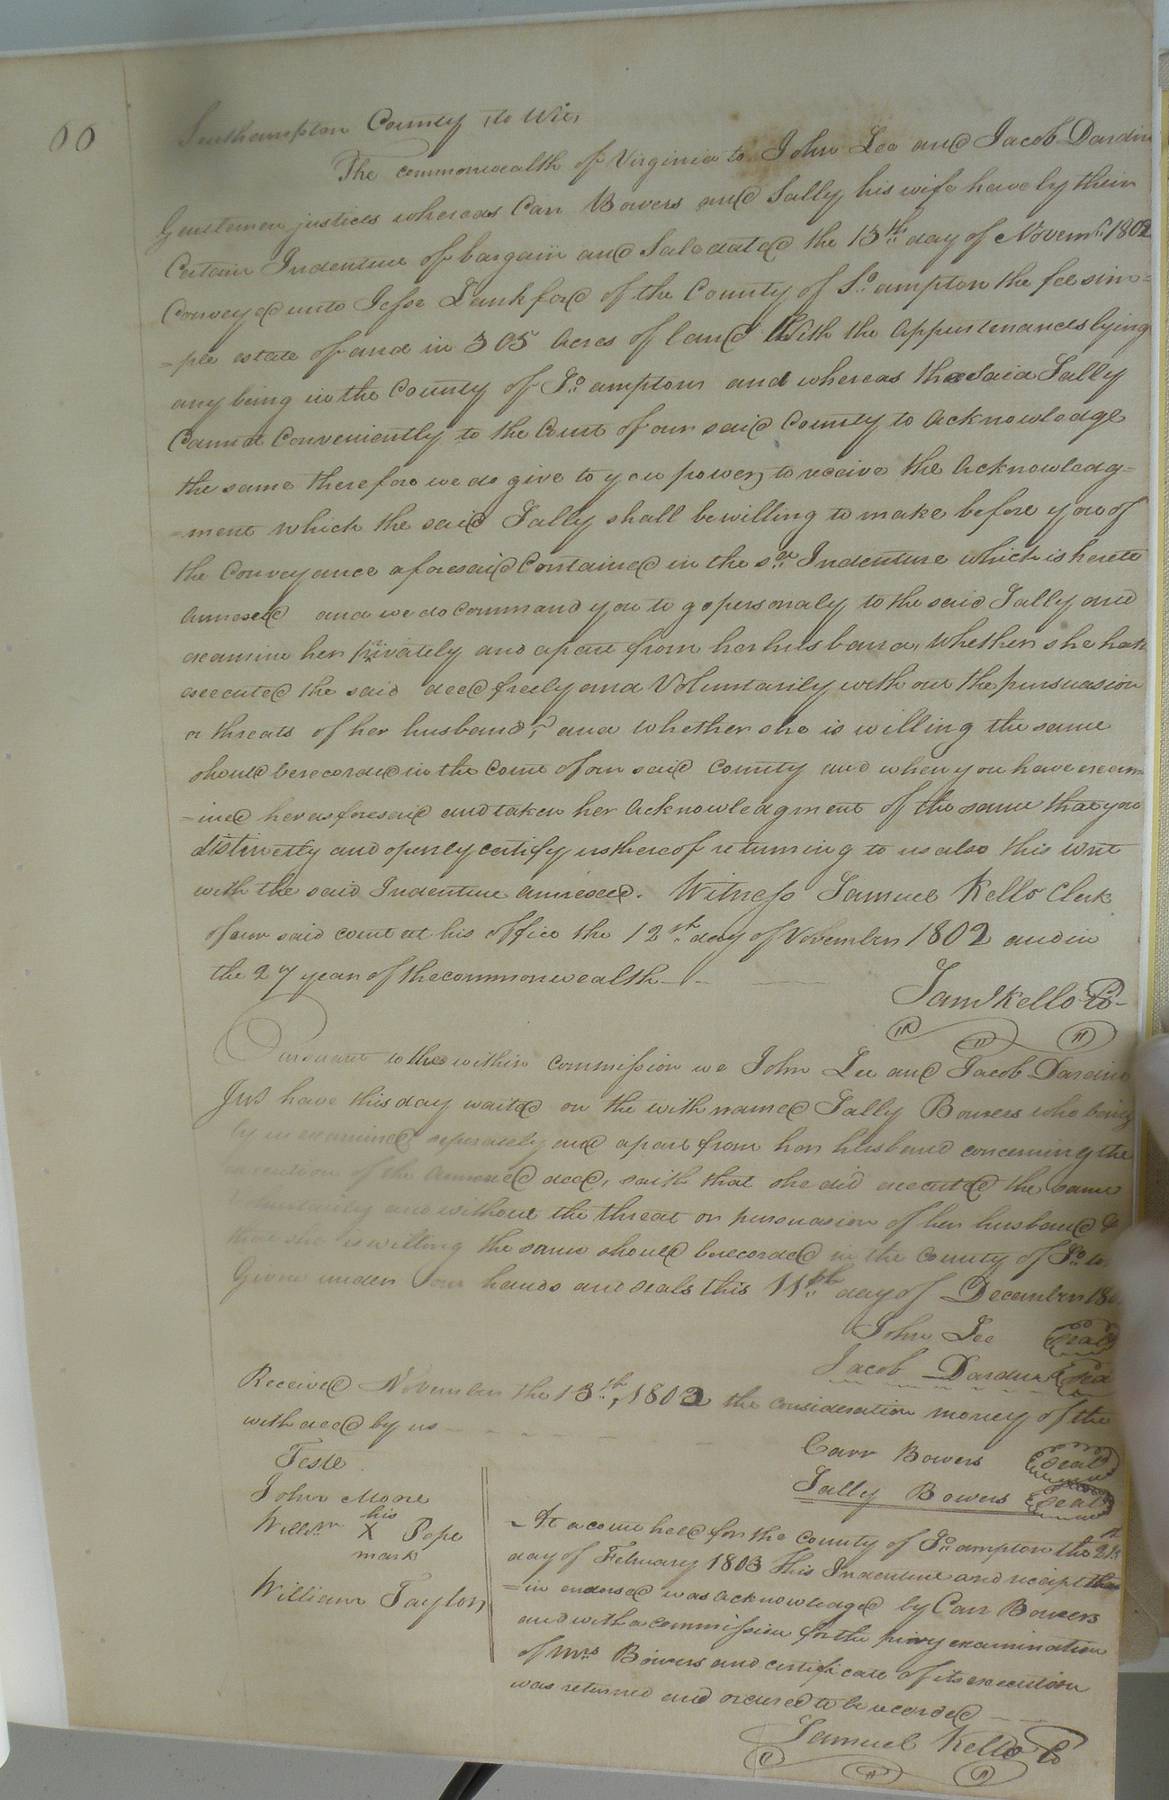 00
Southampton County, to Wit,
The commonwealth of Virginia to John Lee and Jacob Dardin
Gentlemen justices whereas Carr Bowers and Sally his wife have by their
Certain Indenture of bargain and Sale dated the 13th day of Novemr. 1802
Conveyed unto Jesse Lankford of the County of So. ampton the fee sim=
=ple estate of and in 305 Acres of land With the Appurtenances lying
any being in the County of So. ampton and whereas the Said Sally
Cannot Conveniently to the Court of our said County to Acknowledge
the same therefore we do give to you power, to receive the Acknowledg=
=ment which the said Sally shall be willing to make before you of
the Conveyance aforesaid Contained in the sd. Indenture which is hereto
Annexed and we do Command you to go personaly to the said Sally and
examine her privately and apart from her husband, Whether she hath
executed the said deed freely and Voluntarily with out the persuasion
or threats of her husband, and whether she is willing the same
should be recorded in the Court of our said County and when you have exam
=ined her as foresaid and taken her Acknowledgment of the same that you
distinctly and openly certify us thereof returning to us also this writ
with the said Indenture annexed. Witness Samuel Kello Clerk
of our said court at his office the 12st. day of November 1802 and in
the 27 year of the commonwealth
Saml Kello Co
Pursuant to the within Commission we John Lee and Jacob Dardin
Just have this day waited on the with named Sally Bowers who being
by us examined seperately and apart from her husband concerning the
execution of the Annexed deed, saith that she did executed the same
Voluntarily and without the threat or persuasion of her husband &
that she is willing the same should be recorded in the County of So. to
Given under our hands and seals this 11th day of December 180
John Lee Seal
Jacob Darden Seal
Received November the 13th, 1802 the consideration money of the
with deed by us
Carr Bowers Seal
Sally Bowers Seal
Teste
John Moore
Willm his X mark Pope
William Taylor
At a court held for the County of So. ampton the 21st
day of February 1803 this Indenture and reciept there
=in endorsed was Acknowledged by Carr Bowers
and with a commission for the privy examination
of Mrs Bowers and certificate of its execution
was returned and ordered to be recorded
Samuel Kello Co